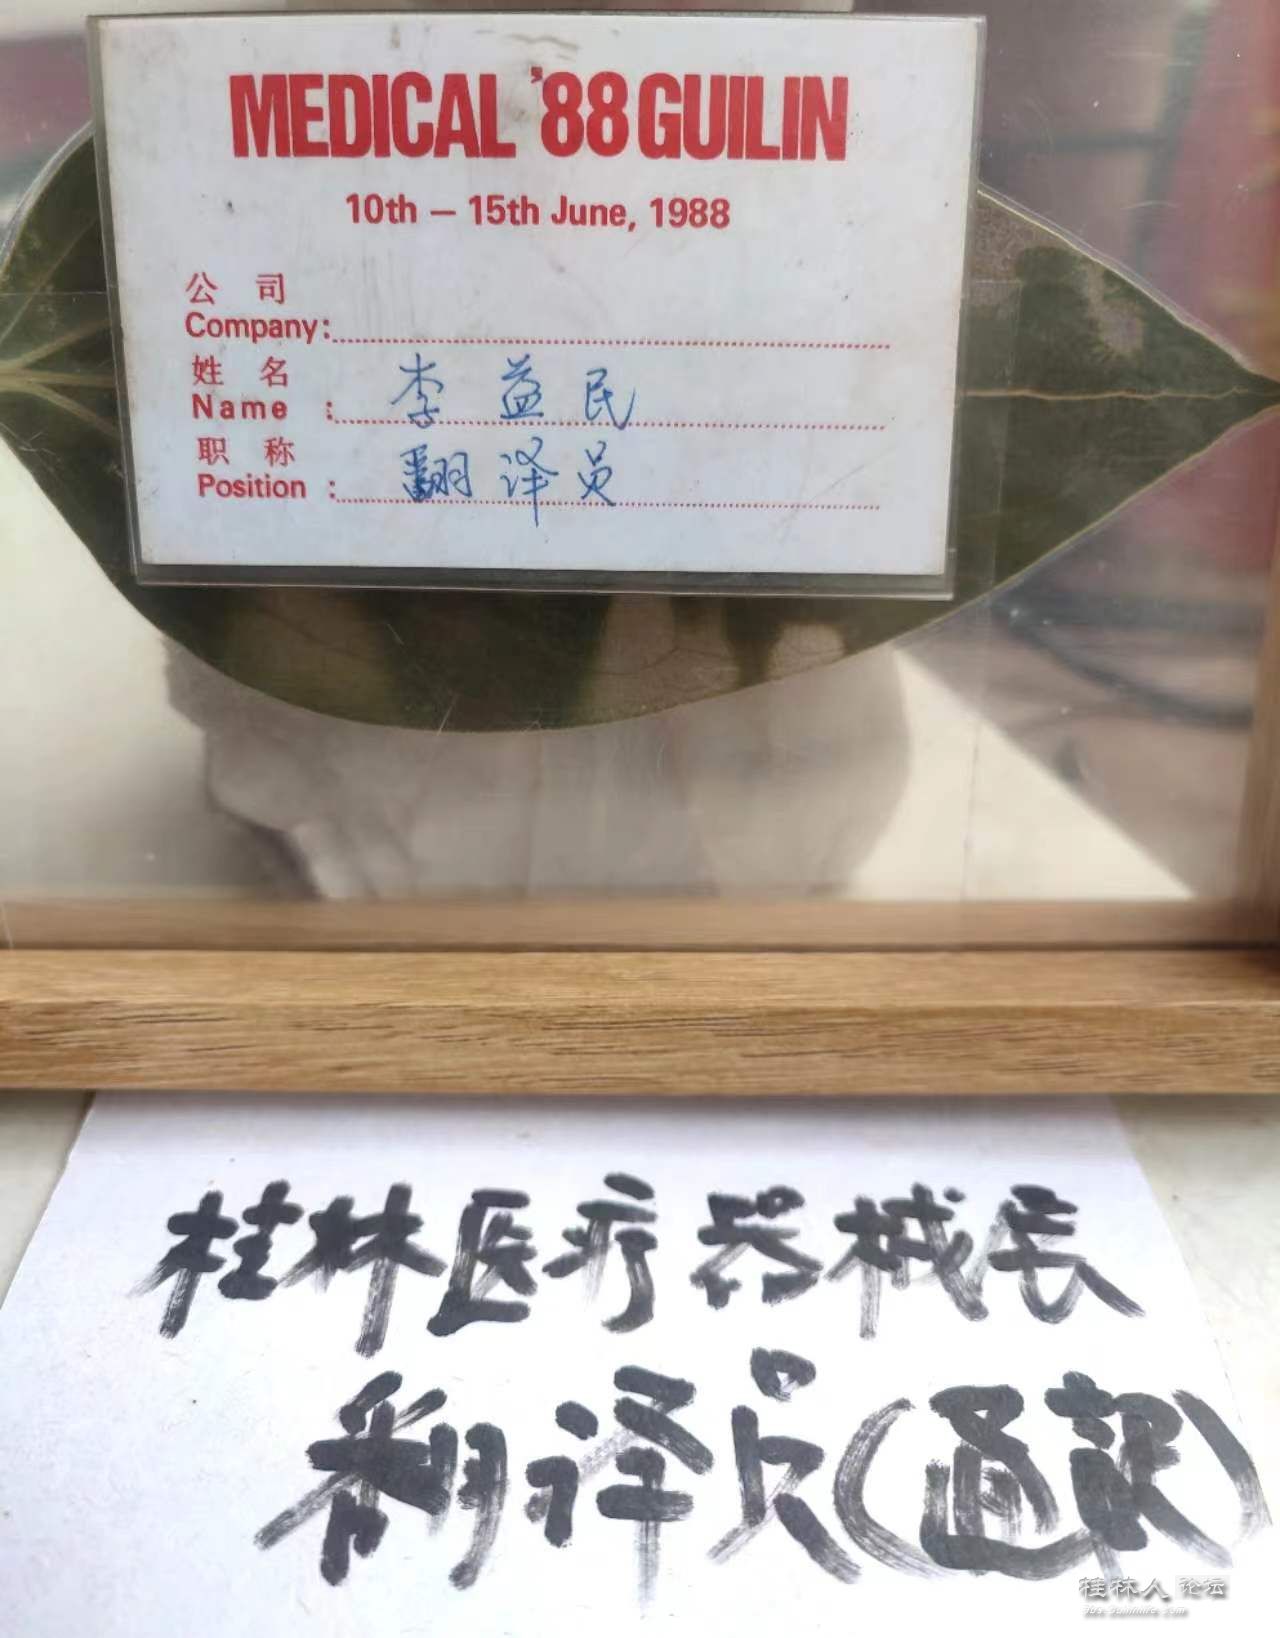 MEDICAL '88 GUILIN
10th – 15th June, 1988
公 司
Company:
姓 名
Name : 李益民
职 称
Position : 翻译员
桂林医疗器械展
翻译员(通訳)
桂林人论坛